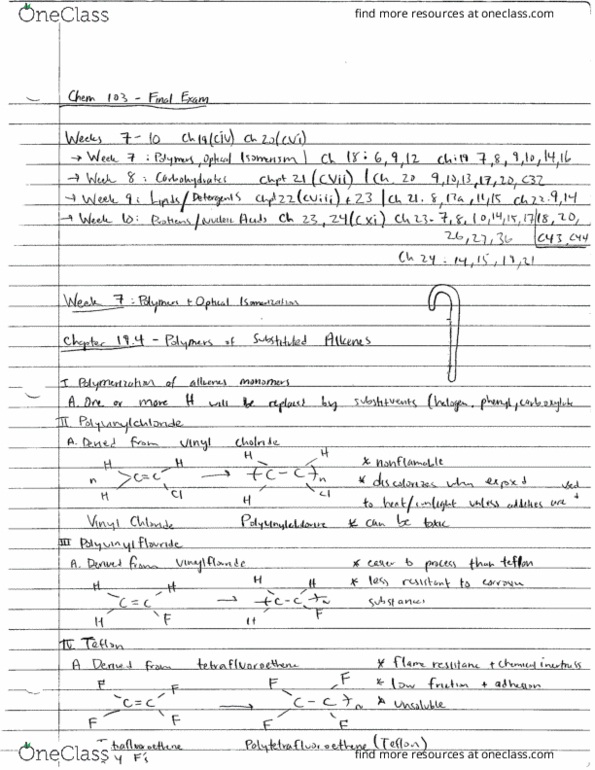 OneClass
find more resources at oneclass.com
Chem 103 - Final Exam
Weeks 7-10 Ch 19(civ) Ch 20(cvi)
→ Week 7 : Polymers, Optical Isomerism | Ch 18 : 6, 9, 12 Ch 19 7, 8, 9, 10, 14, 16
→ Week 8 : Carbohydrates Chpt 21 (CVii) | Ch. 20 9, 10, 13, 17, 20, C32
→ Week 9 : Lipids / Detergents Chpt 22 (Cviii) + 23 | Ch 21. 8, 13a, 11, 15 Ch 22. 9, 14
→ Week 10 : Proteins / Nucleic Acids Ch 23, 24 (Cxi) Ch 23. 7, 8, 10, 14, 15, 17, 18, 20,
26, 27, 36 C43, C44
Ch 24 : 14, 15, 19, 21
Week 7 : Polymers + Optical Isomerization
Chapter 19.4 - Polymers of Substituted Alkenes
I Polymerization of alkenes monomers
A. One or more H will be replaced by substituents (halogen, phenyl, carboxylate
II Polyvinylchloride
A. Derived from vinyl chloride
H H H H
n C=C → C-C n
H Cl H Cl
* nonflamable
* discolorizes when exposed
to heat/sunlight unless additives are used
Vinyl Chloride Polyvinylchloride * can be toxic
III Polyvinyl flouride
A. Derived from vinylfloride * easier to process than teflon
* less resistant to corrosive
substances
H H H H
C=C → C-C n
H F H F
IV Teflon
A Derived from tetrafluoroethene * flame resistance + chemical inertness
* low friction + adhesion
* unsoluble
F F F F
C=C → C-C n
F F F F
Polytetrafluoroethene (Teflon)
OneClass
find more resources at oneclass.com